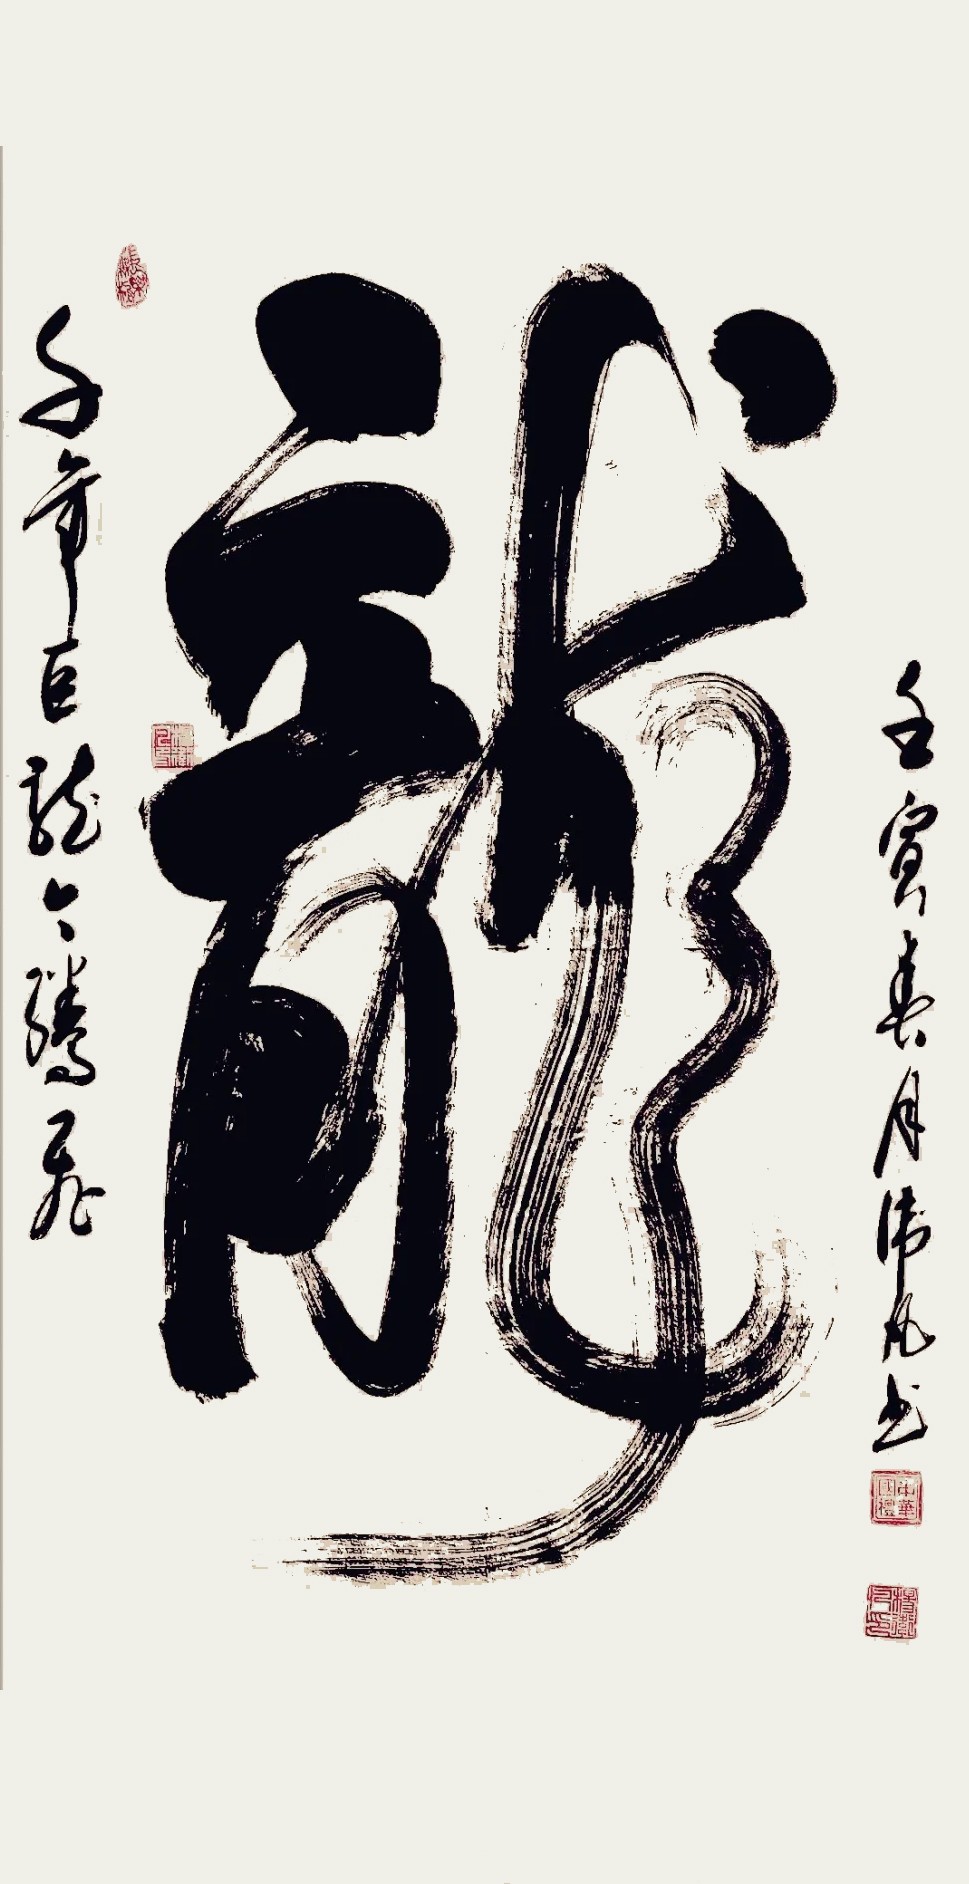 龍
千年巨龍今騰飛
壬寅春月衛凡书
中華國禮